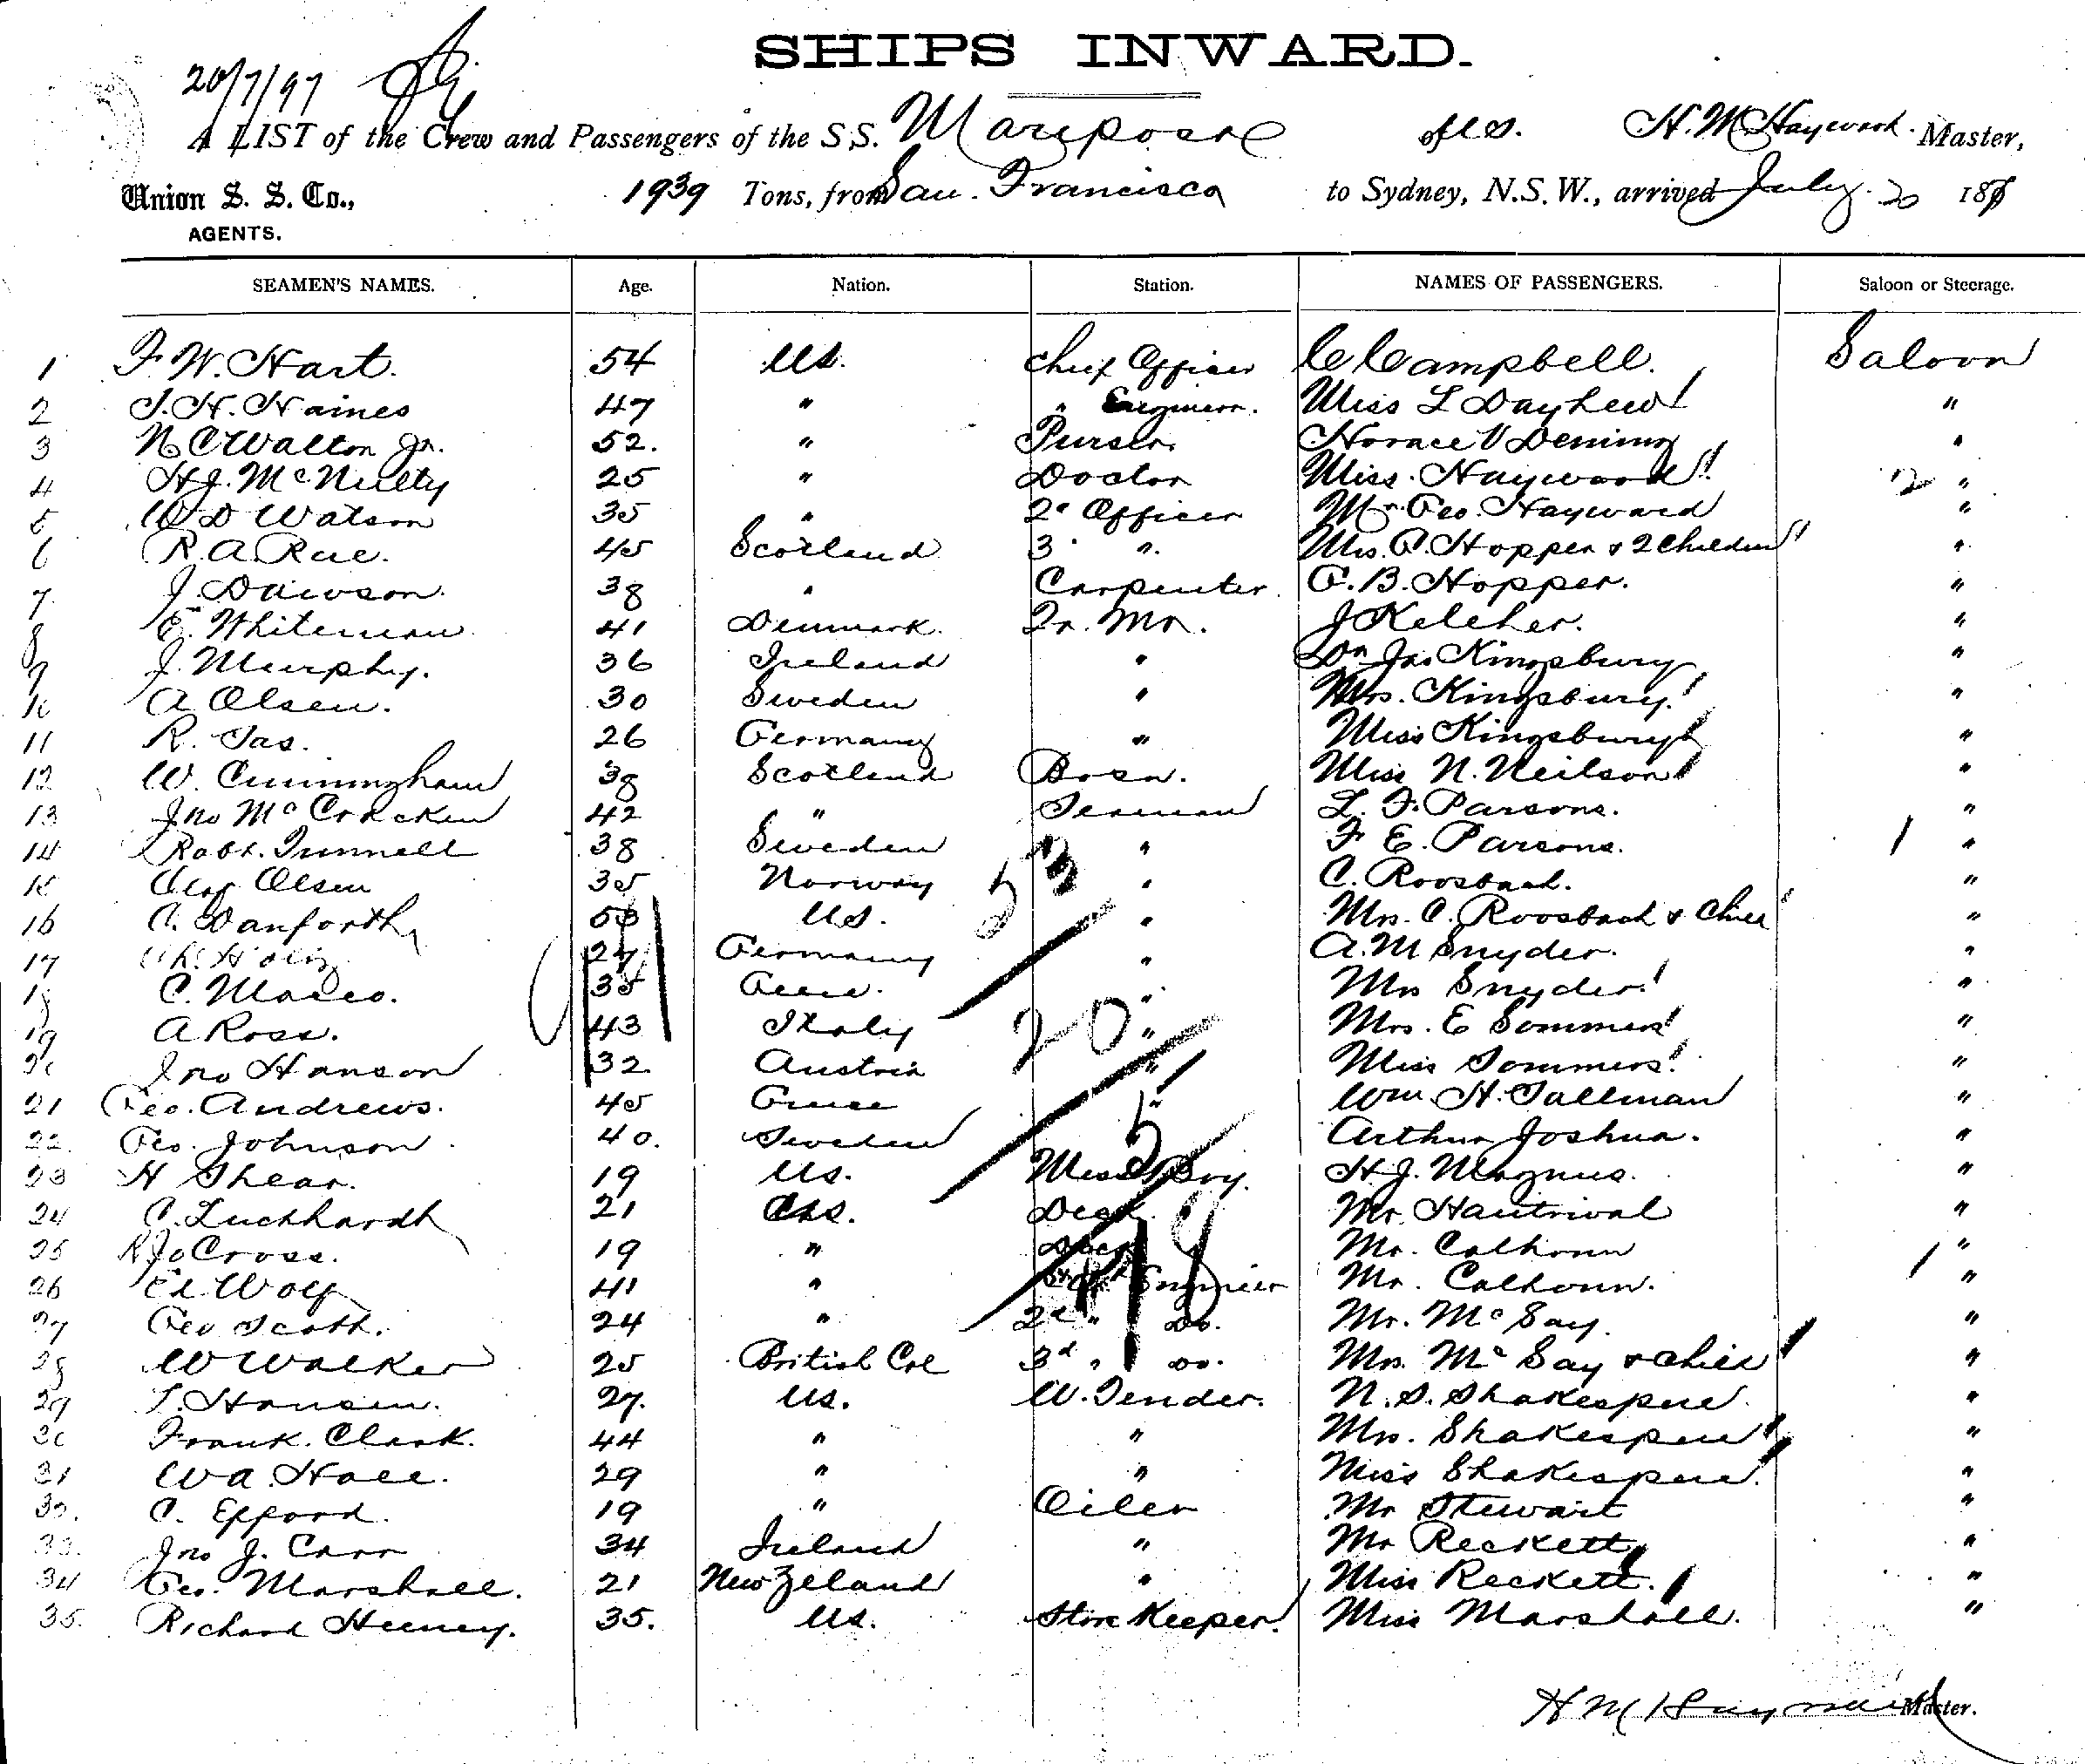 SHIPS INWARD.
20/7/97
A LIST of the Crew and Passengers of the S.S. Mariposa of U.S. H.M. Hayward. Master,
Union S. S. Co., 1939 Tons, from San. Francisco to Sydney, N.S.W., arrived July. 20 189
AGENTS.
SEAMEN'S NAMES. Age. Nation. Station. NAMES OF PASSENGERS. Saloon or Steerage.
1 F. W. Hart. 54 U.S. Chief Officer C Campbell. Saloon
2 J. H. Haines 47 " " Engineer. Miss L Dayhew "
3 N C Walton Jr. 52. " Purser. Horace V Deming "
4 H.J. McNulty 25 " Doctor Miss. Hayward 2 "
5 W D Watson 35 " 2d Officer Mr. Geo. Hayward "
6 R. A. Rae. 45 Scotland 3 ". Mrs. G. Hopper & 2 Children "
7. J. Dawson. 38 " Carpenter. G. B. Hopper. "
8 E. Whiteman 41 Denmark. Qr. Mr. J Keleher. "
9 J. Murphy. 36 Ireland " Dr Jas Kingsbury "
10 A Olsen. 30 Sweden " Mrs. Kingsbury. "
11 R. Jas. 26 Germany " Miss Kingsbury "
12 W. Cunningham 38 Scotland Bosn. Miss N. Neilson "
13 Jno McCracken 42 " Seaman L. F. Parsons. "
14 Robt. Tunnell 38 Sweden " F E. Parsons. 1 "
15 Olaf Olsen 35 Norway " C. Roosbach. "
16 C. Danforth 53 U.S. " Mrs. C. Roosbach & Child "
17 27 Germany " A. M Snyder. "
18 C. Marco. 35 Greece. " Mrs Snyder. "
19 A Ross. 43 Italy " Mrs. E Sommers "
20 Jno Hanson 32 Austria " Miss Sommers. "
21 Geo. Andrews. 45 Greece " Wm. H. Tallman "
22. Geo. Johnson. 40. Sweden Arthur Joshua. "
23 H Shear. 19 U.S. Mess Boy. H. J. Magnus. "
24 C. Luchhardt 21 U.S. Deck Mr. Hautrival "
25 R Jo Cross. 19 " Deck Mr. Calhoun "
26 Ed. Wolf 41 " 1st Asst Engineer Mr. Calhoun. 1 "
27 Geo Scott. 24 " 2d " Do. Mr. McGay. "
28 W Walker 25 British Col 3d " Do. Mrs. McGay & Child "
29 T. Hansen. 27. U.S. W. Tender. N. S. Shakespere. "
30 Frank. Clark. 44 " " Mrs. Shakespere "
31 W A. Hall. 29 " " Miss Shakespere. "
32. C. Efford. 19 " Oiler Mr Stewart "
33. Jno J. Carr 34 Ireland " Mr Reckett "
34 Geo. Marshall. 21 New Zeland " Miss Reckett. "
35. Richard Heeney. 35. U.S. Store Keeper. Miss Marshall. "
53
20
5
18
H M Hayward Master.